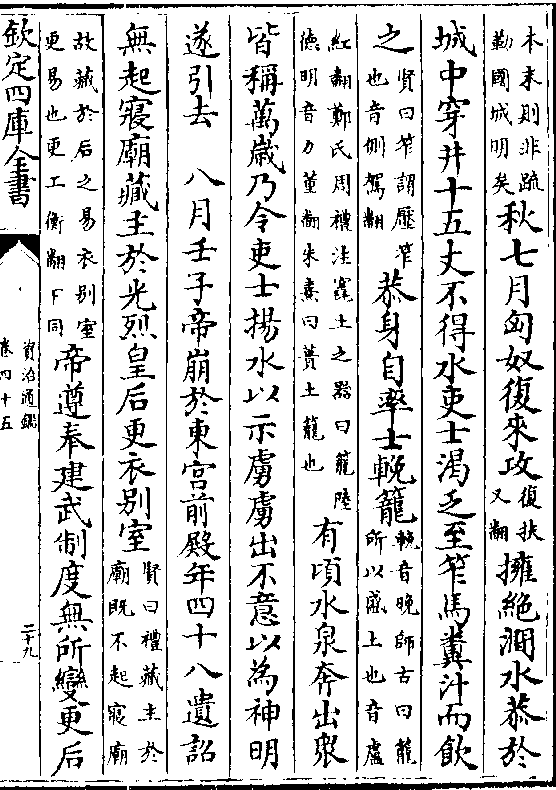 本末則非疏
勒國城明矣
秋七月匈奴復來攻
復扶
又翻
擁絶澗水恭於
城中穿井十五丈不得水吏士渇乏至笮馬糞汁而飲
之
賢曰笮謂壓笮
也音側駕翻
恭身自率士輓籠
輓音晚師古曰籠
所以盛土也音盧
紅翻鄭氏周禮注籠土之器曰籠陸
德明音力董翻朱熹曰蕢土籠也
有頃水泉奔出衆
皆稱萬歳乃令吏士揚水以示虜虜出不意以為神明
遂引去 八月壬子帝崩於東宫前殿年四十八遺詔
無起寢廟藏主於光烈皇后更衣别室
賢曰禮藏主於
廟既不起寢廟
故藏於后之易衣别室
更易也更工衡翻下同
帝遵奉建武制度無所變更后
欽定四庫全書
資治通鑑
卷四十五
二十九